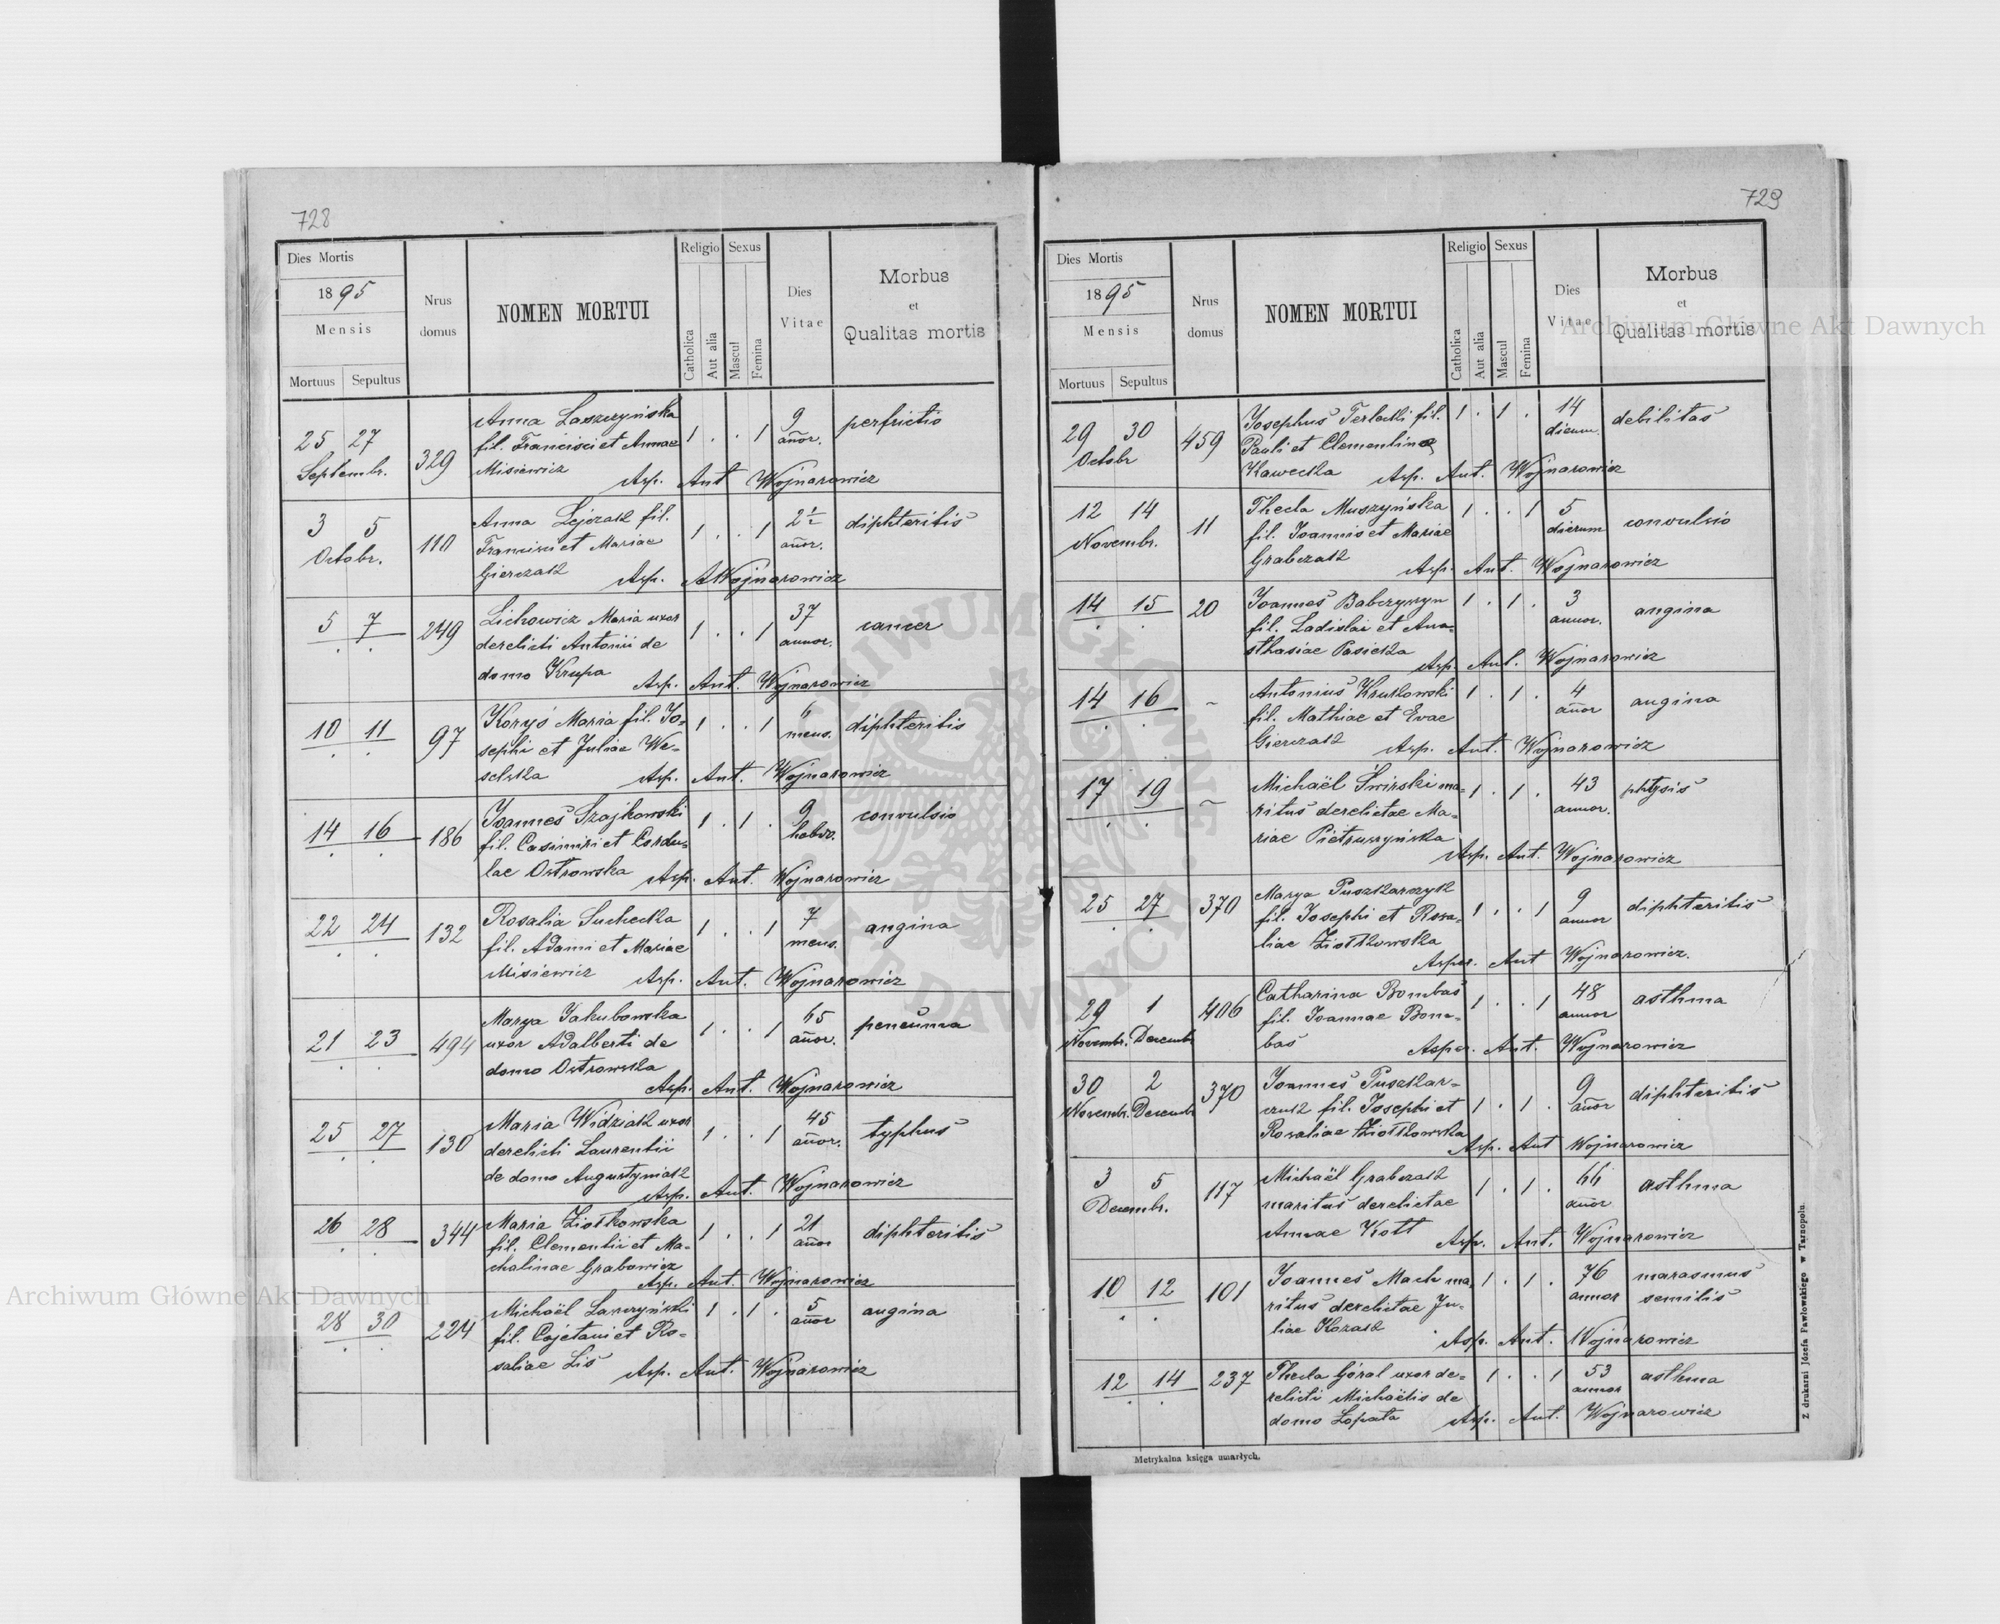 728
Dies Mortis
1895
Mensis
Mortuus Sepultus
Nrus domus
NOMEN MORTUI
Religio
Catholica
Aut alia
Sexus
Mascul
Femina
Dies Vitae
Morbus
et
Qualitas mortis
25 27 Septembr. 329
Anna Laszczyńska
fil. Francisci et Annae
Misiewicz
1 . . 1 9 añor. perfrictio
Asp. Ant Wojnarowicz
3 5 Octobr. 110
Anna Lejczak fil.
Francisci et Mariae
Gierczak
1 . . 1 2½ añor. diphteritis
Asp. A Wojnarowicz
5 7 249
Lichowicz Maria uxor
derelicti Antonii de
domo Krupa
1 . . 1 37 annor. cancer
Asp. Ant. Wojnarowicz
10 11 97
Koryś Maria fil. Jo-
sephi et Juliae We-
selska
1 . . 1 6 mens. diphteritis
Asp. Ant. Wojnarowicz
14 16 186
Joannes Szajkowski
fil. Casimiri et Cordu-
lae Ostrowska
1 . 1 . 9 hebdo. convulsio
Asp. Ant. Wojnarowicz
22 24 132
Rosalia Suchecka
fil. Adami et Mariae
Misiewicz
1 . . 1 7 mens. angina
Asp. Ant. Wojnarowicz
21 23 494
Marya Jakubowska
uxor Adalberti de
domo Ostrowska
1 . . 1 65 añor. peneuma
Asp. Ant. Wojnarowicz
25 27 130
Maria Widziak uxor
derelicti Laurentii
de domo Augustyniak
1 . . 1 45 añor. typhus
Asp. Ant. Wojnarowicz
26 28 344
Maria Ziołkowska
fil. Clementii et Ma-
chalinae Grabowicz
1 . . 1 21 añor diphteritis
Asp. Ant. Wojnarowicz
28 30 224
Michaël Laszczyński
fil. Cajetani et Ro-
saliae Lis
1 . 1 . 5 añor angina
Asp. Ant. Wojnarowicz
729
Dies Mortis
1895
Mensis
Mortuus Sepultus
Nrus domus
NOMEN MORTUI
Religio
Catholica
Aut alia
Sexus
Mascul
Femina
Dies Vitae
Morbus
et
Qualitas mortis
29 30 Octobr 459
Josephus Terlecki fil.
Pauli et Clementinae
Kawecka
1 . 1 . 14 dierum debilitas
Asp. Ant. Wojnarowicz
12 14 Novembr. 11
Thecla Muszyńska
fil. Joannis et Mariae
Grabczak
1 . . 1 5 dierum convulsio
Asp. Ant. Wojnarowicz
14 15 20
Joannes Babczyszyn
fil. Ladislai et Ana-
sthasiae Pasieka
1 . 1 . 3 annor. angina
Asp. Ant. Wojnarowicz
14 16 ~
Antonius Krutkowski
fil. Mathiae et Evae
Gierczak
1 . 1 . 4 añor angina
Asp. Ant. Wojnarowicz
17 19 ~
Michaël Świrski ma-
ritus derelictae Ma-
riae Pietruszyńska
1 . 1 . 43 annor. phtysis
Asp. Ant. Wojnarowicz
25 27 370
Marya Puszkarczyk
fil. Josephi et Rosa-
liae Ziołkowska
1 . . 1 9 annor diphteritis
Asper. Ant Wojnarowicz.
29 1 Novembr. Decembr 406
Catharina Bombas
fil. Joannae Bom-
bas
1 . . 1 48 annor asthma
Asper. Ant. Wojnarowicz
30 2 Novembr. Decembr 370
Joannes Puszkar-
czuk fil. Josephi et
Rosaliae Ziołkowska
1 . 1 . 9 añor diphteritis
Asp. Ant Wojnarowicz
3 5 Decembr. 117
Michaël Grabczak
maritus derelictae
Annae Kott
1 . 1 . 66 añor asthma
Asp. Ant. Wojnarowicz
10 12 101
Joannes Mach ma-
ritus derelictae Ju-
liae Kozak
1 . 1 . 76 annor marasmus
senilis
Asp. Ant. Wojnarowicz
12 14 237
Thecla Góral uxor de-
relicti Michaëlis de
domo Łopata
1 . . 1 53 annor asthma
Asp. Ant. Wojnarowicz
Metrykalna księga umarłych.
Z drukarni Józefa Pawłowskiego w Tarnopolu.
Archiwum Główne Akt Dawnych
Archiwum Główne Akt Dawnych
ARCHIWUM GŁÓWNE AKT DAWNYCH